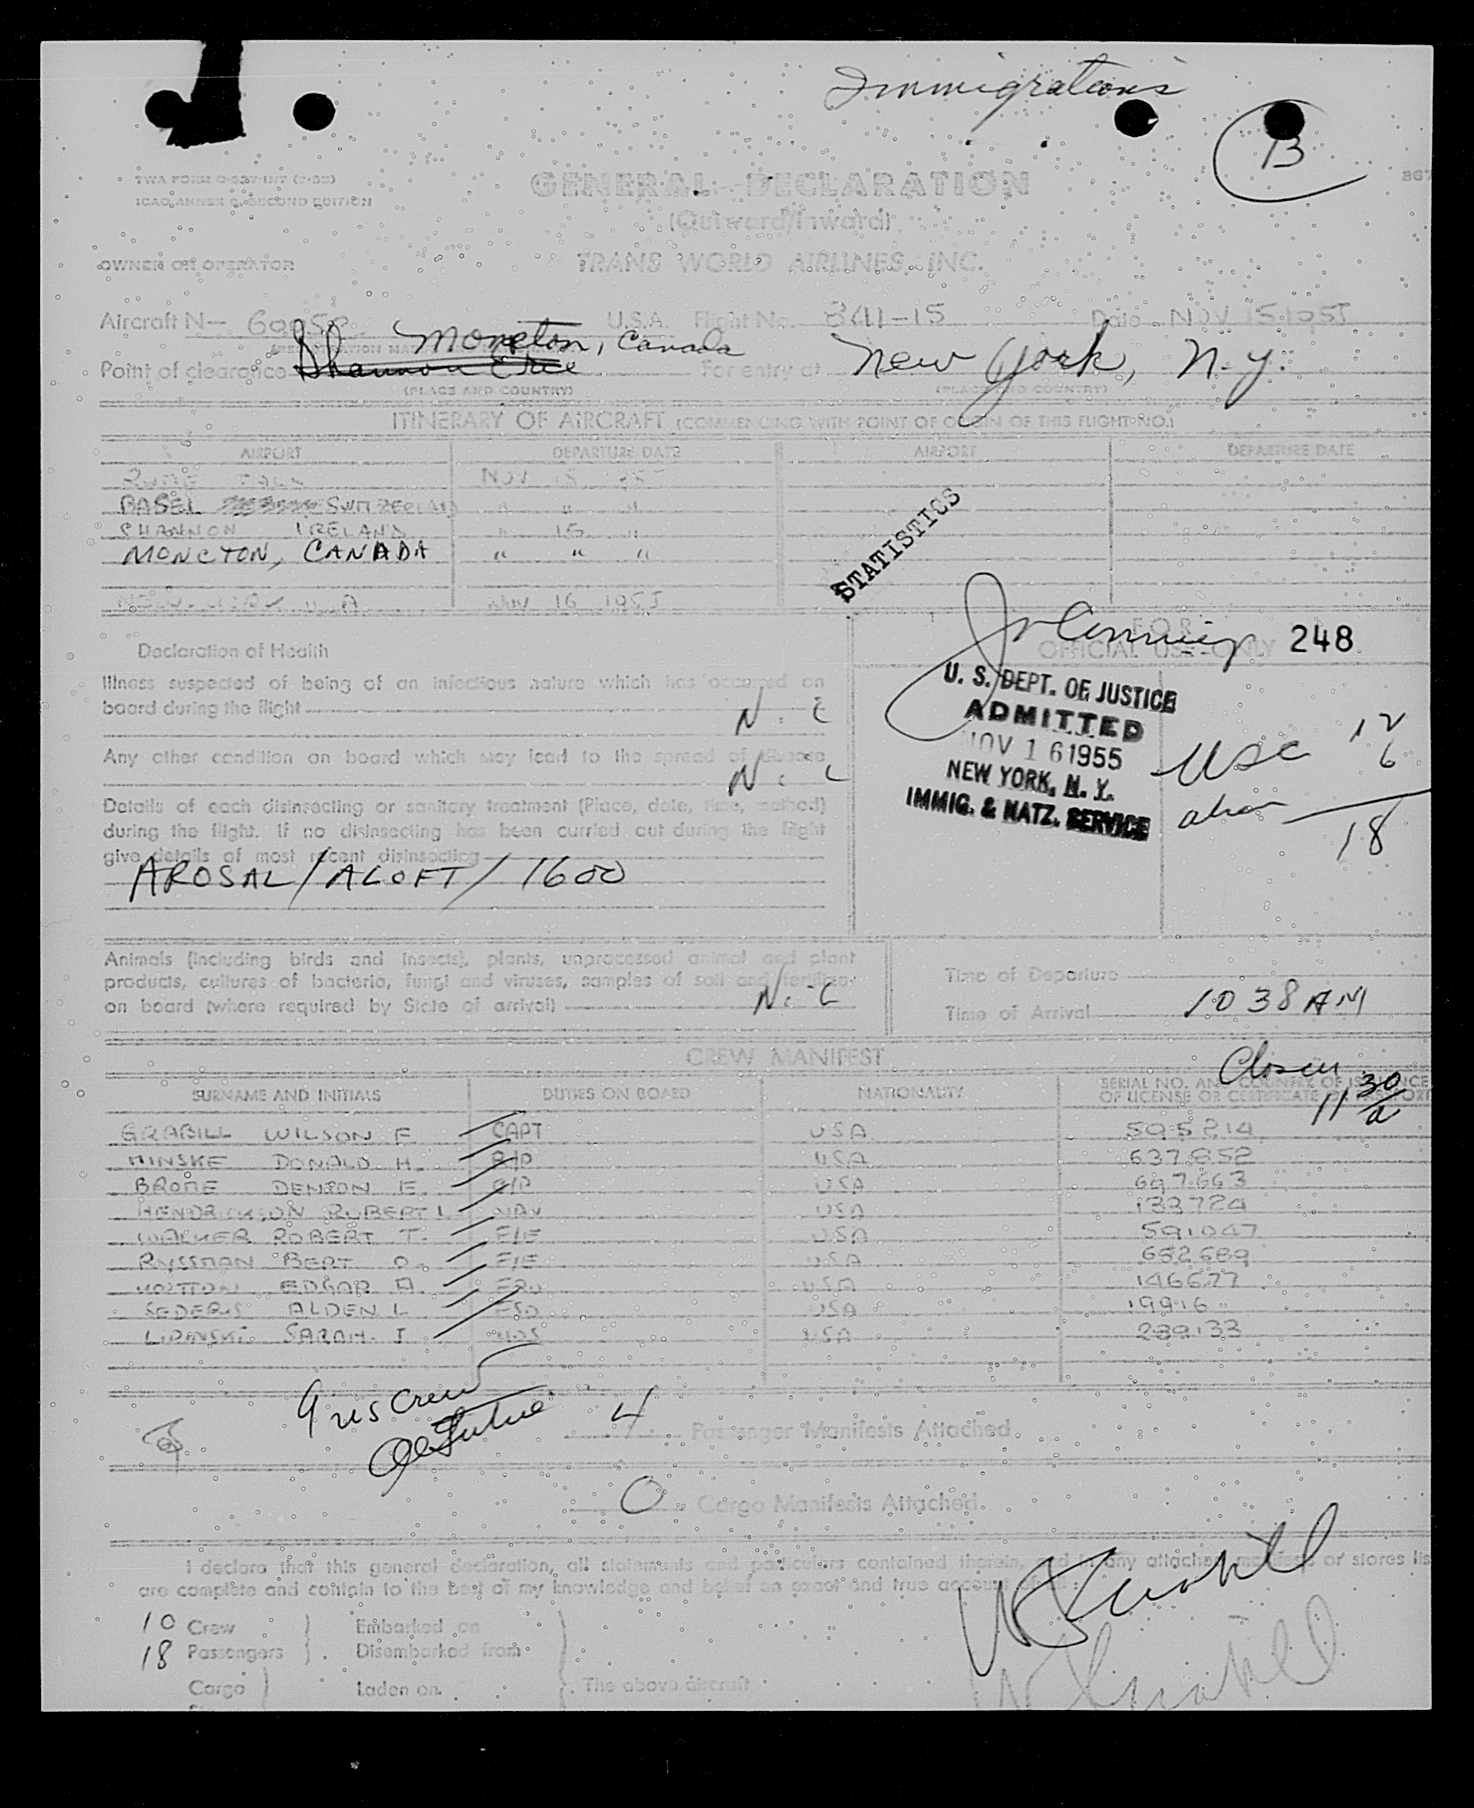 Immigrations
13
TWA FORM O-337-INT (3-55)
ICAO ANNEX 9, SECOND EDITION
GENERAL DECLARATION
(Outward/Inward)
OWNER OR OPERATOR
TRANS WORLD AIRLINES, INC.
Aircraft N- U.S.A. Flight No. 841-15 Date NOV 15 1955
Moncton, Canada
Point of clearance Shannon Eire For entry at New York, N.Y.
(PLACE AND COUNTRY) (PLACE AND COUNTRY)
ITINERARY OF AIRCRAFT (COMMENCING WITH POINT OF ORIGIN OF THIS FLIGHT NO.)
AIRPORT DEPARTURE DATE AIRPORT DEPARTURE DATE
ROME ITALY NOV
BASEL SWITZERLAND " " "
SHANNON IRELAND " 15 "
MONCTON, CANADA " " "
NEW YORK USA NOV 16 1955
STATISTICS
Declaration of Health
FOR
OFFICIAL USE ONLY 248
Illness suspected of being of an infectious nature which has occurred on
board during the flight N. C
U. S. DEPT. OF JUSTICE
ADMITTED
NOV 16 1955
NEW YORK, N. Y.
IMMIG. & NATZ. SERVICE
USC 12
alien 6
18
Any other condition on board which may lead to the spread of disease
N. C
Details of each disinsecting or sanitary treatment (Place, date, time, method)
during the flight. If no disinsecting has been carried out during the flight
give details of most recent disinsecting
AROSAL/ALOFT/1600
Animals (including birds and insects), plants, unprocessed animal and plant
products, cultures of bacteria, fungi and viruses, samples of soil and fertilizer
on board (where required by State of arrival) N. C
Time of Departure
Time of Arrival 1038 AM
CREW MANIFEST
Closed
11 30/a
SURNAME AND INITIALS DUTIES ON BOARD NATIONALITY SERIAL NO. AND COUNTRY OF ISSUANCE
OF LICENSE OR CERTIFICATE OR PASSPORT
GRABILL WILSON F CAPT USA 595214
MINSKE DONALD H. USA 637852
BROME DENSON E. USA 697663
HENDRICKSON ROBERT L NAV USA 133724
WALKER ROBERT T. F/E USA 591047
RYSSMAN BERT O. F/E USA 652689
EDGAR A USA 146577
SEDERS ALDEN L USA 19916
LIPINSKI SARAH J HOS USA 239133
9 US Crew
4 Passenger Manifests Attached.
0 Cargo Manifests Attached.
I declare that this general declaration, all statements and particulars contained therein, and in any attached manifests or stores lis
are complete and contain to the best of my knowledge and belief an exact and true account of all
10 Crew Embarked on
18 Passengers Disembarked from
Cargo Laden on The above aircraft